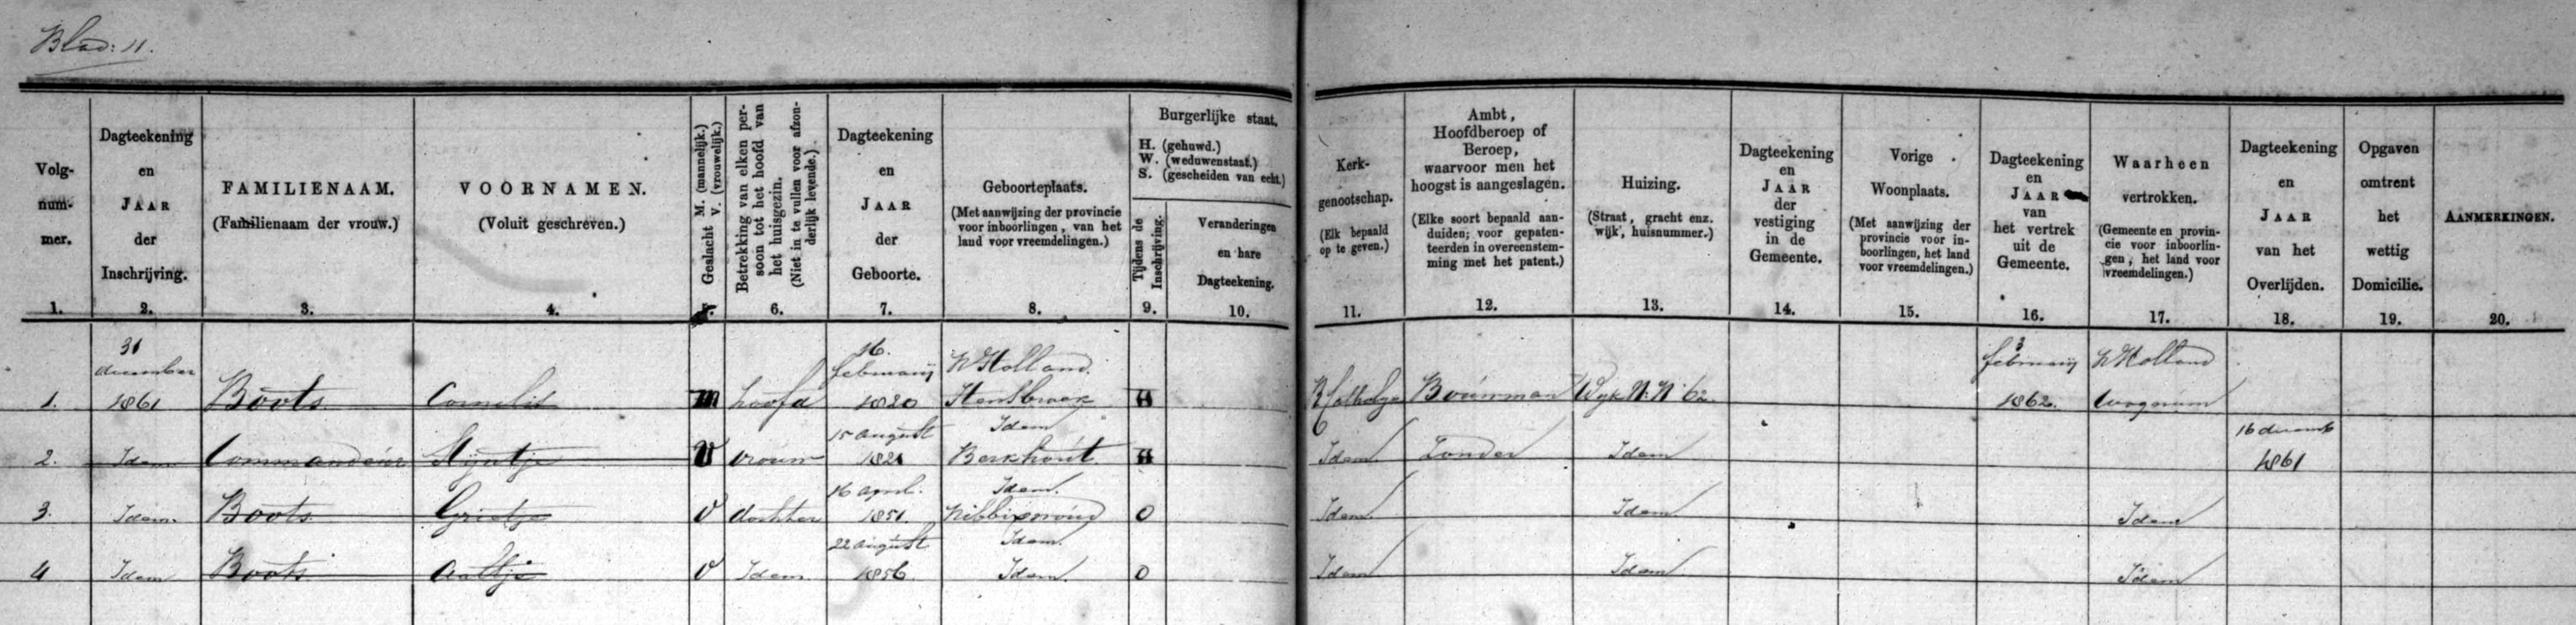 Blad: 11.
Volg-
num-
mer.
1.
Dagteekening
en
JAAR
der
Inschrijving.
2.
FAMILIENAAM.
(Familienaam der vrouw.)
3.
VOORNAMEN.
(Voluit geschreven.)
4.
Geslacht M. (mannelijk.)
V. (vrouwelijk.)
5.
Betrekking van elken per-
soon tot het hoofd van
het huisgezin.
(Niet in te vullen voor afzon-
derlijk levende.)
6.
Dagteekening
en
JAAR
der
Geboorte.
7.
Geboorteplaats.
(Met aanwijzing der provincie
voor inboorlingen, van het
land voor vreemdelingen.)
8.
Burgerlijke staat.
H. (gehuwd.)
W. (weduwenstaat.)
S. (gescheiden van echt.)
Tijdens de
Inschrijving.
9.
Veranderingen
en hare
Dagteekening.
10.
Kerk-
genootschap.
(Elk bepaald
op te geven.)
11.
Ambt,
Hoofdberoep of
Beroep,
waarvoor men het
hoogst is aangeslagen.
(Elke soort bepaald aan-
duiden; voor gepaten-
teerden in overeenstem-
ming met het patent.)
12.
Huizing.
(Straat, gracht enz.
wijk, huisnummer.)
13.
Dagteekening
en
JAAR
der
vestiging
in de
Gemeente.
14.
Vorige
Woonplaats.
(Met aanwijzing der
provincie voor in-
boorlingen, het land
voor vreemdelingen.)
15.
Dagteekening
en
JAAR
van
het vertrek
uit de
Gemeente.
16.
Waarheen
vertrokken.
(Gemeente en provin-
cie voor inboorlin-
gen, het land voor
vreemdelingen.)
17.
Dagteekening
en
JAAR
van het
Overlijden.
18.
Opgaven
omtrent
het
wettig
Domicilie.
19.
AANMERKINGEN.
20.
31 december 16. februarij N Holland 3 februarij N Holland
1. 1861 Boots Cornelis m hoofd 1820 Hensbroek H Bouwman Wijk N: N 62 1862. Wognum
15 august Idem 16 decemb
2. Idem Commandeur Stijntje V vrouw 1821 Berkhout H Idem Zonder Idem 1861
16 april. Idem.
3. Idem. Boots Grietje V dochter 1851. Nibbixwoud O Idem Idem Idem
22 august Idem.
4 Idem Boots Aaltje V Idem 1856. Idem. O Idem Idem Idem